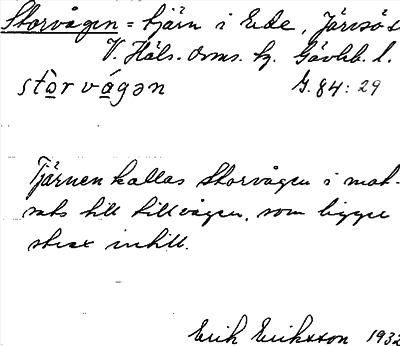 Storvågen = tjärn i Ede, Järvsö s
V. Häls. dms. hg. Gävleb. l.
stòr vágən G. 84:29
Tjärnen kallas Storvågen i mot-
sats till Lillvågen, som ligger
strax intill.
Erik Eriksson 1932